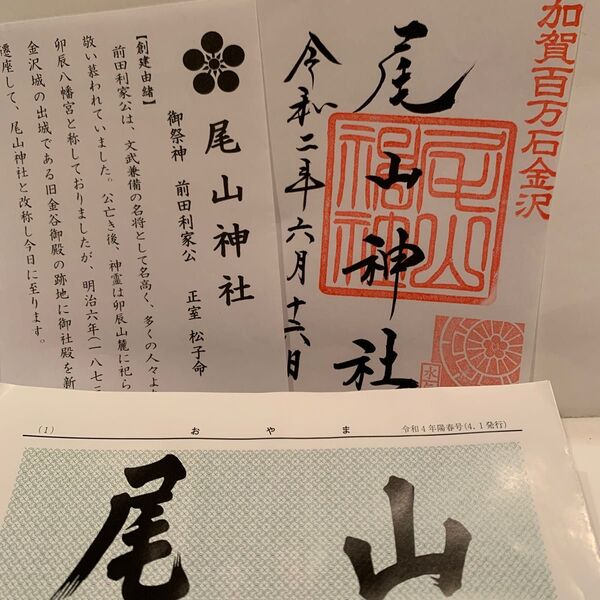 加賀百万石金沢
尾山神社
令和二年六月十六日
尾山神社
尾山神社
御祭神 前田利家公 正室 松子命
【創建由緒】
前田利家公は、文武兼備の名将として名高く、多くの人々よ
敬い慕われていました。公亡き後、神霊は卯辰山麓に祀ら
卯辰八幡宮と称しておりましたが、明治六年(一八七三
金沢城の出城である旧金谷御殿の跡地に御社殿を新
遷座して、尾山神社と改称し今日に至ります。
(1) おやま 令和4年陽春号(4.1発行)
尾山